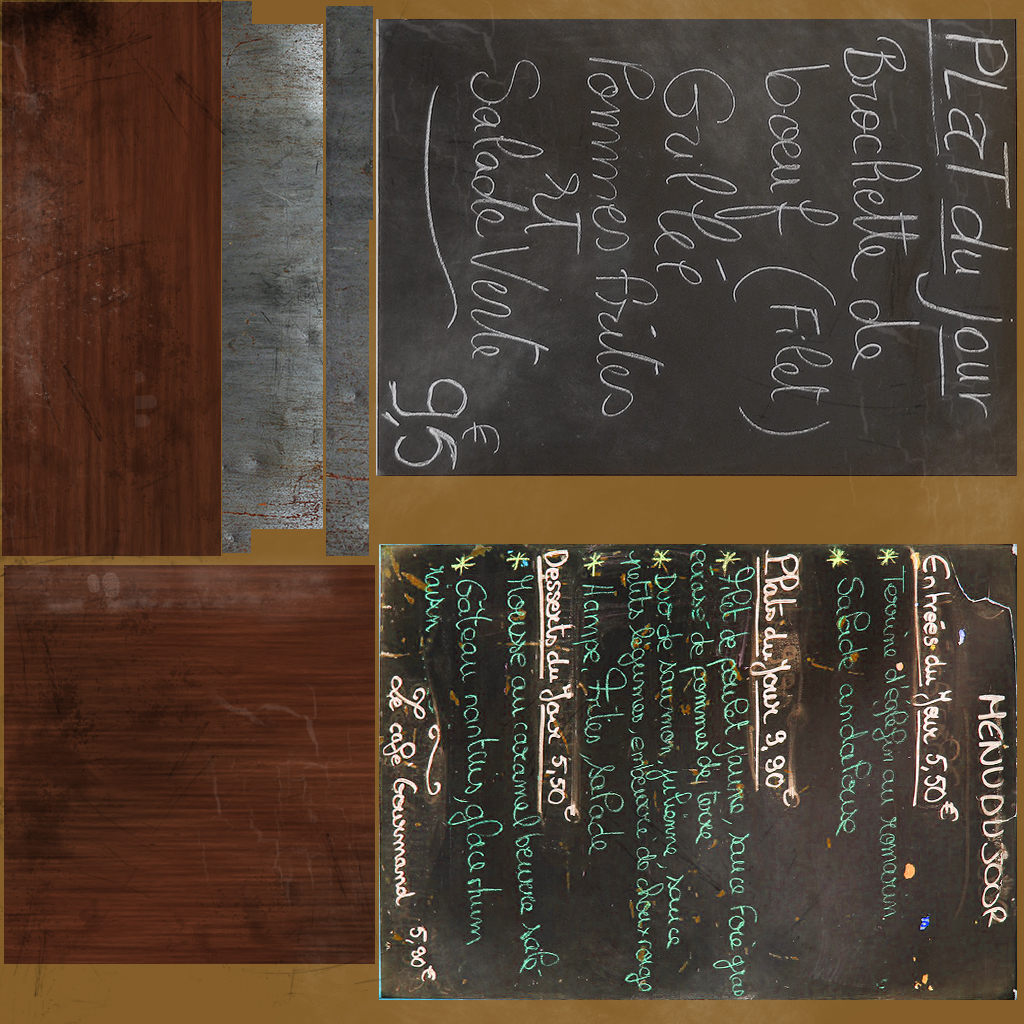 PLaT du Jour
Brochette de
boeuf (Filet)
Grillé
Pommes Frites
et
Salade Verte
9,5 €
MENU DU JOUR
Entrées du Jour 5,50 €
* Terrine d'églefin au romarin
* Salade andalouse
Plats du Jour 9,90 €
* Filet de poulet jaune, sauce Foie gras
écrasé de pommes de terre
* Duo de saumon, julienne, sauce
petits légumes, embeurré de choux rouge
* Hampe Frites salade
Desserts du Jour 5,50 €
* Mousse au caramel beurre salé
* Gâteau nantais, glace rhum
raisin
Le café Gourmand 5,90 €